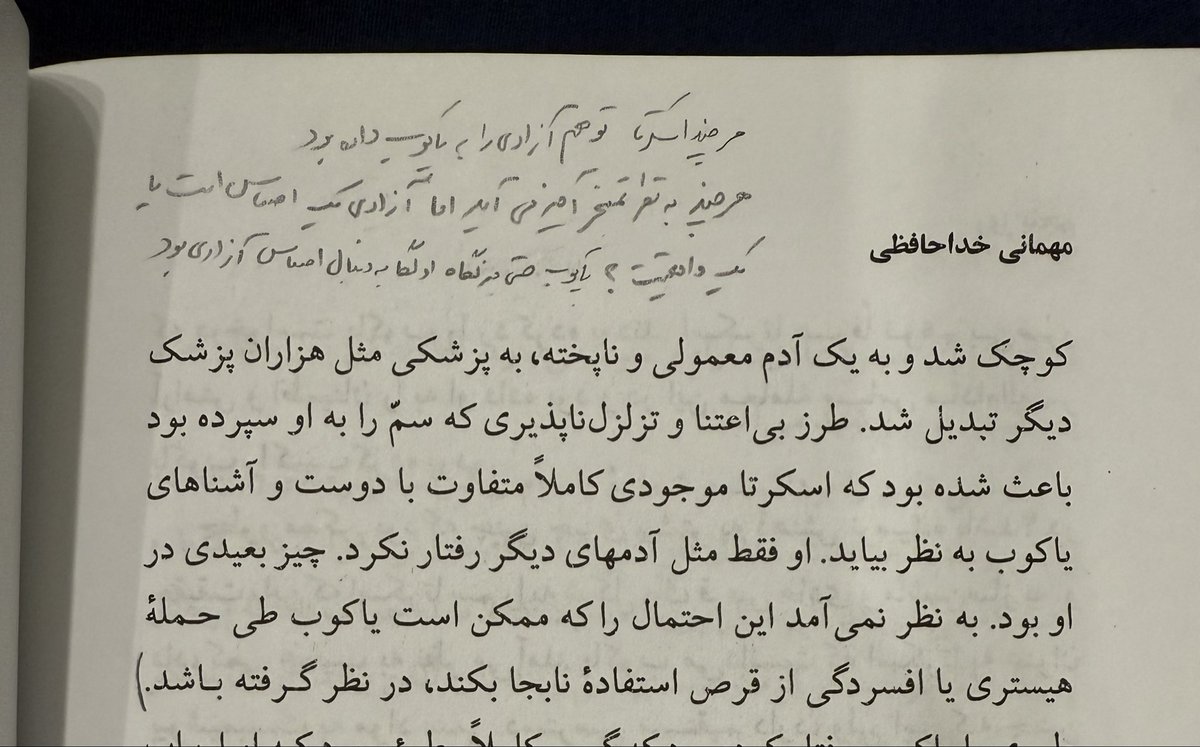 هرچند اسکرتا توهم آزادی را به یاکوب داده بود
هرچند به نظر تمسخر آمیز می آید اما آزادی یک احساس است یا
یک واقعیت؟ یاکوب حتی در نگاه اولگا به دنبال احساس آزادی بود
مهمانی خداحافظی
کوچک شد و به یک آدم معمولی و ناپخته، به پزشکی مثل هزاران پزشک
دیگر تبدیل شد. طرز بی‌اعتنا و تزلزل‌ناپذیری که سمّ را به او سپرده بود
باعث شده بود که اسکرتا موجودی کاملاً متفاوت با دوست و آشناهای
یاکوب به نظر بیاید. او فقط مثل آدمهای دیگر رفتار نکرد. چیز بعیدی در
او بود. به نظر نمی‌آمد این احتمال را که ممکن است یاکوب طی حملهٔ
هیستری یا افسردگی از قرص استفادهٔ نابجا بکند، در نظر گرفته باشد.)